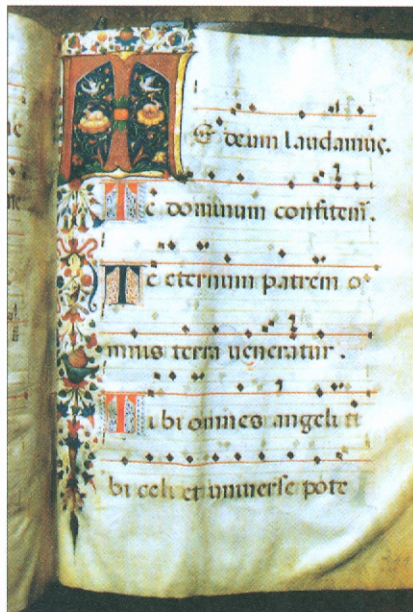 Te deum laudamus.
Te dominum confitem̃.
Te eternum patrem o
mnis terra ueneratur.
Tibi omnes angeli ti
bi celi et uniuerse pote